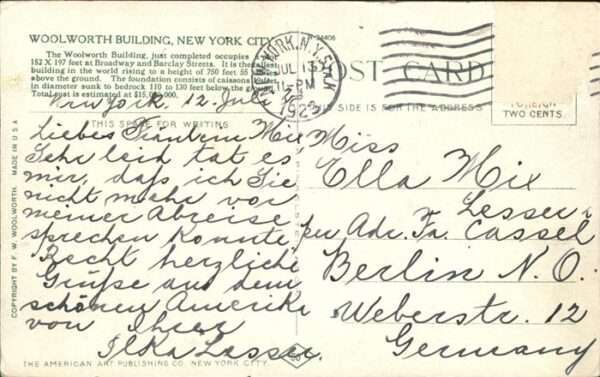 WOOLWORTH BUILDING, NEW YORK CITY
The Woolworth Building, just completed occupies
152 X 197 feet at Broadway and Barclay Streets. It is the tallest
building in the world rising to a height of 750 feet 55
above the ground. The foundation consists of caissons
in diameter sunk to bedrock 110 to 130 feet below the
Total cost is estimated at $15,000,000.
NEW YORK, N.Y.
JUL 13
PM
192
POST CARD
THIS SIDE IS FOR THE ADDRESS
TWO CENTS.
New York, 12. Juli
THIS SPACE FOR WRITING
liebes Fräulein Mix
Sehr leid tat es
mir, daß ich Sie
nicht mehr vor
meiner Abreise
sprechen konnte.
Recht herzliche
Grüße aus dem
schönen Amerika
von Ihrer
Ilka Lasser.
Miss
Ella Mix
per Adr. Fa. Lesser &
Cassel
Berlin N.O.
Weberstr. 12
Germany
COPYRIGHT BY F. W. WOOLWORTH. MADE IN U S A
THE AMERICAN ART PUBLISHING CO. NEW YORK CITY.